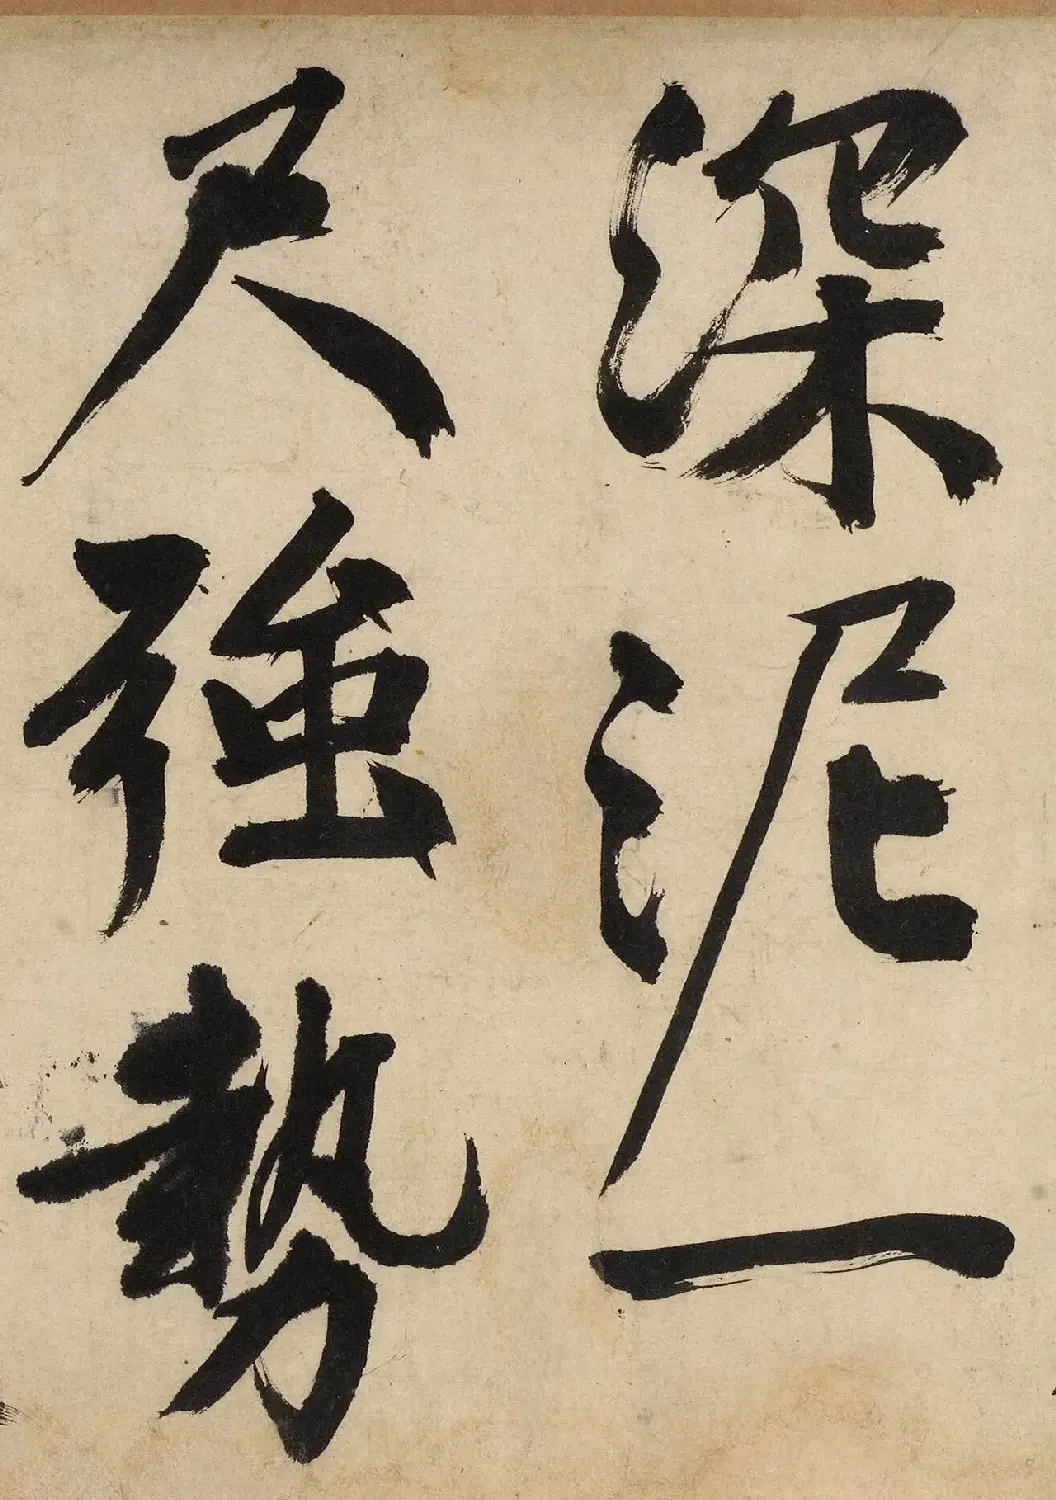 深泥一
尺強勢